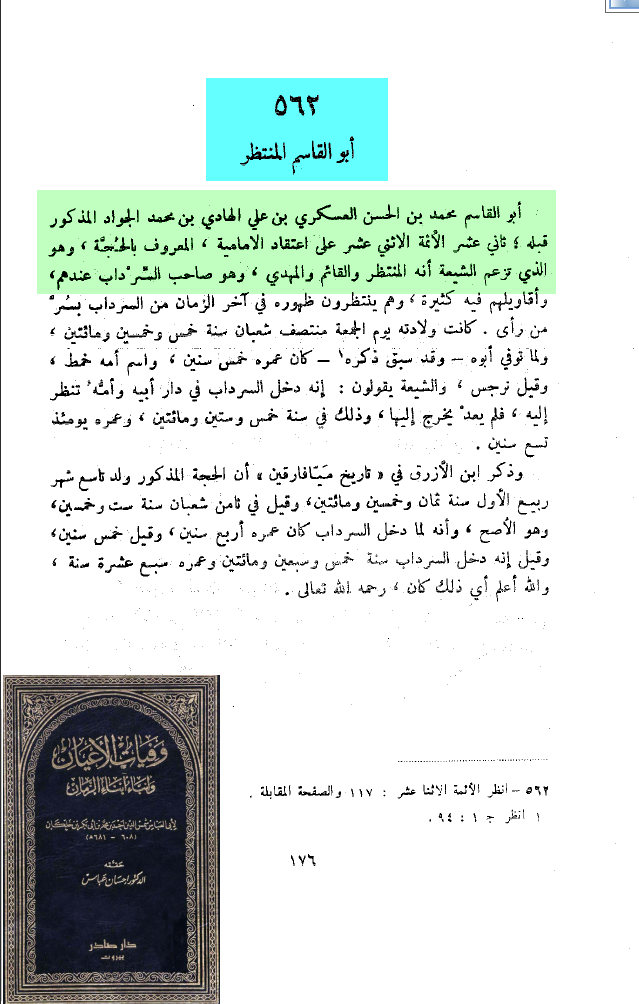 ٥٦٢
أبو القاسم المنتظر
أبو القاسم محمد بن الحسن العسكري بن علي الهادي بن محمد الجواد المذكور
قبله ؛ ثاني عشر الأئمة الاثني عشر على اعتقاد الامامية ، المعروف بالحُجَّة ، وهو
الذي تزعم الشيعة أنه المنتظر والقائم والمهدي ، وهو صاحب السِّرْداب عندهم،
وأقاويلهم فيه كثيرة ، وهم ينتظرون ظهوره في آخر الزمان من السرداب بسُرَّ
من رأى . كانت ولادته يوم الجمعة منتصف شعبان سنة خمس وخمسين ومائتين ،
ولما توفي أبوه – وقد سبق ذكره١ – كان عمره خمس سنين ، واسم أمه خمط ،
وقيل نرجس ، والشيعة يقولون : إنه دخل السرداب في دار أبيه وأمُّه تنظر
إليه ، فلم يعدْ يخرج إليها ، وذلك في سنة خمس وستين ومائتين ، وعمره يومئذ
تسع سنين .
وذكر ابن الأزرق في « تاريخ مَيّافارقين » أن الحجة المذكور ولد تاسع شهر
ربيع الأول سنة ثمان وخمسين ومائتين، وقيل في ثامن شعبان سنة ست وخمسين،
وهو الأصح ، وأنه لما دخل السرداب كان عمره أربع سنين ، وقيل خمس سنين،
وقيل إنه دخل السرداب سنة خمس وسبعين ومائتين وعمره سبع عشرة سنة ،
والله أعلم أي ذلك كان ، رحمه الله تعالى .
٥٦٢ – انظر الأئمة الاثنا عشر : ١١٧ والصفحة المقابلة .
١ انظر ج ١ : ٩٤ .
١٧٦
وفيات الأعيان
وأنباء أبناء الزمان
لأبي العباس شمس الدين أحمد بن محمد بن أبي بكر بن خلكان
(٦٠٨ – ٦٨١ھ)
حققه
الدكتور احسان عباس
دار صادر
بيروت